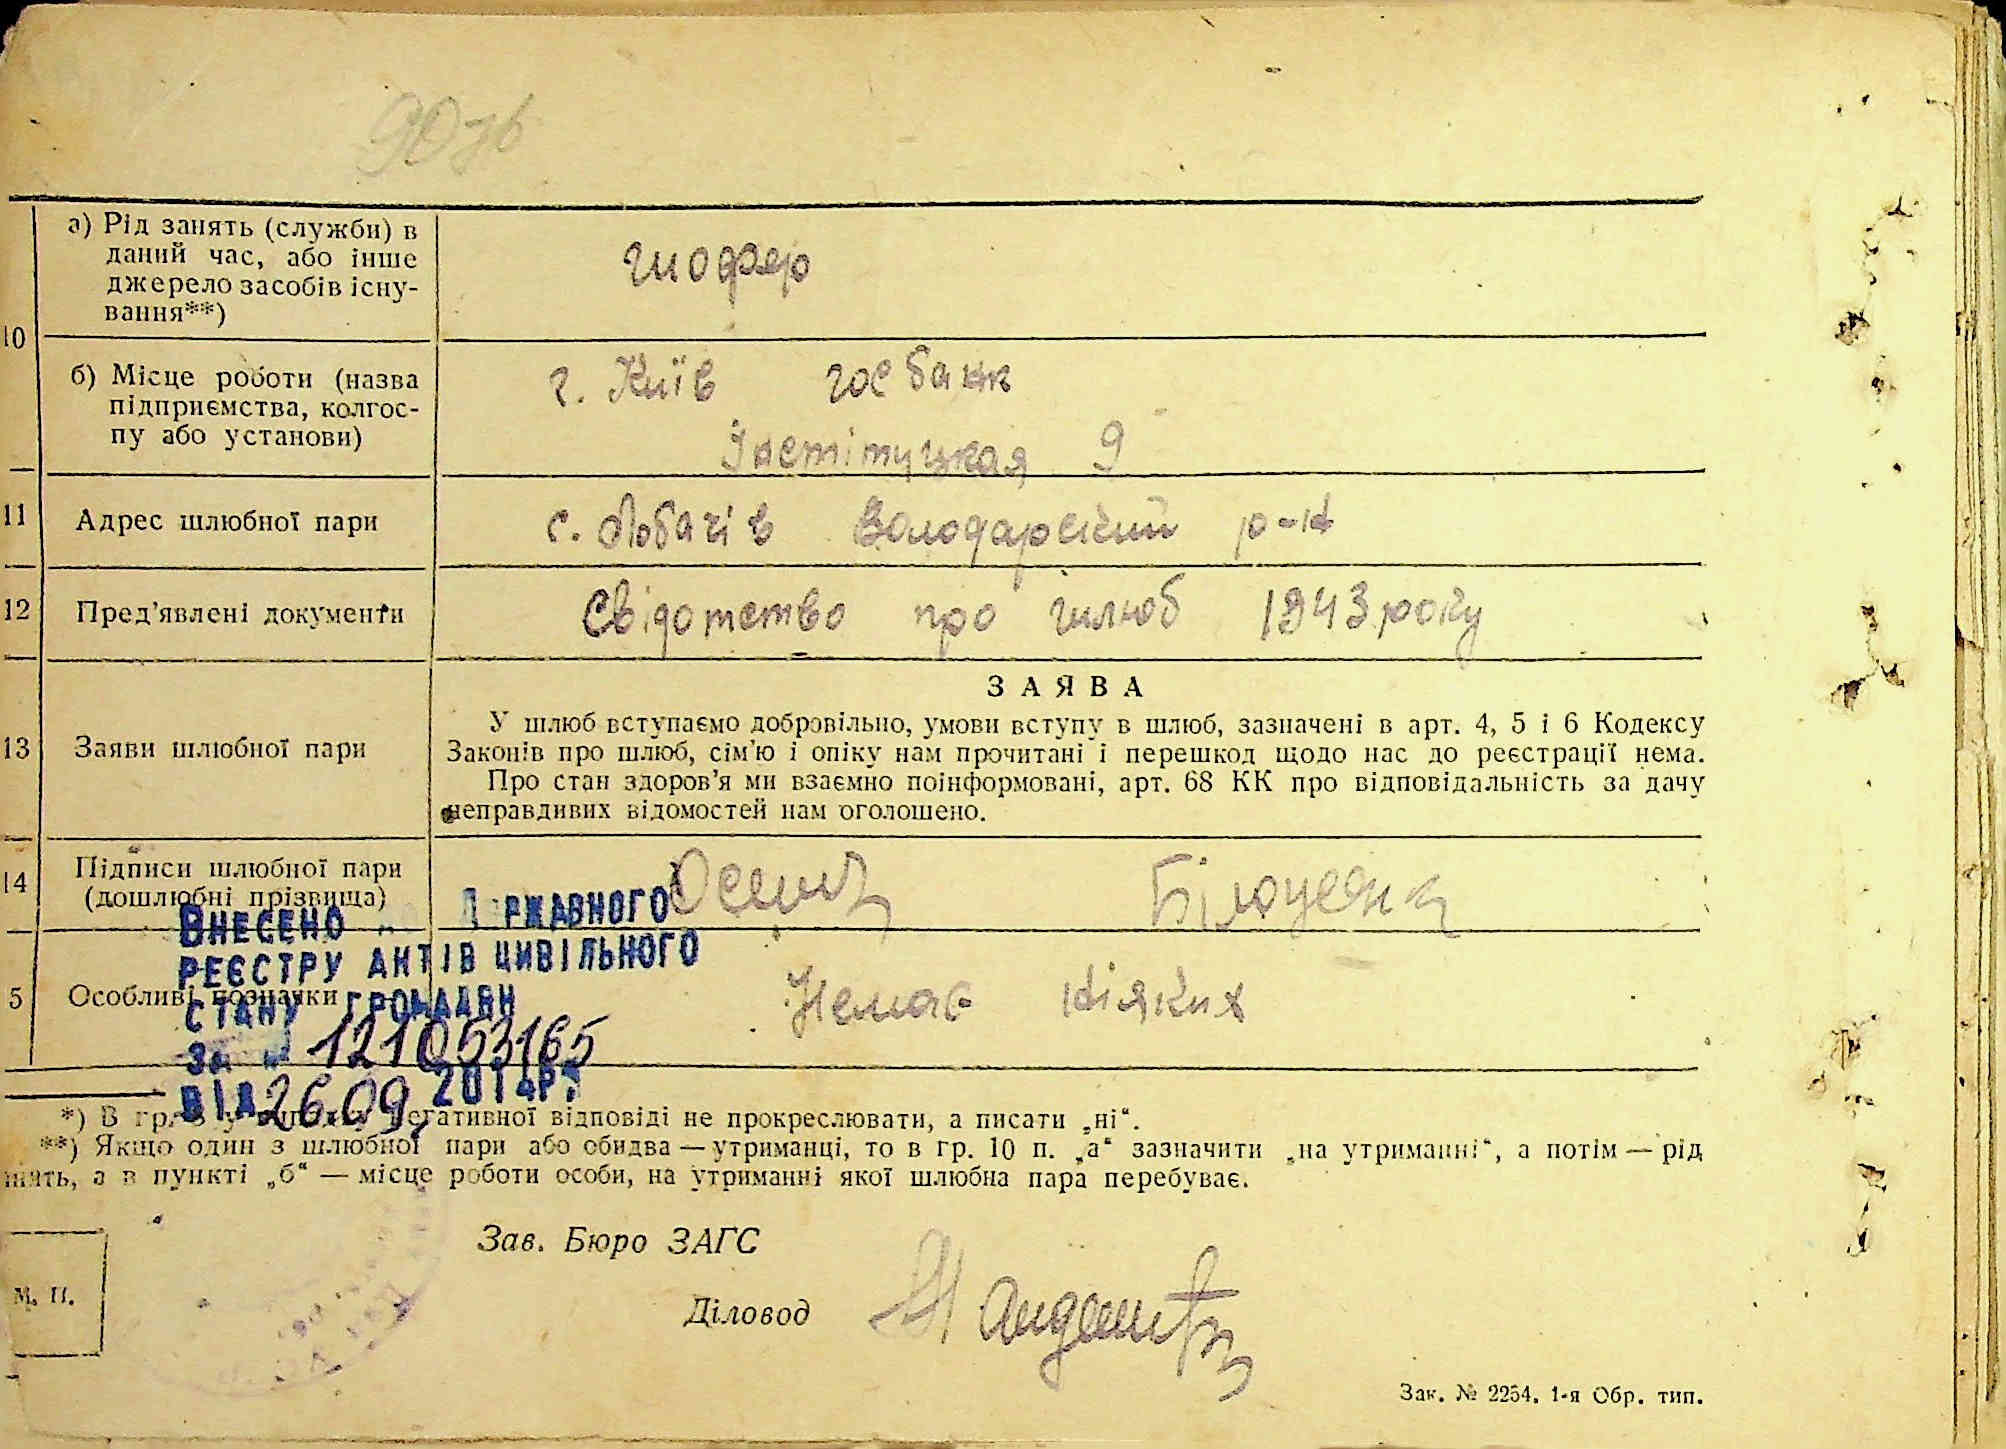 90зв
а) Рід занять (служби) в
даний час, або інше
джерело засобів існу-
вання**)
шофер
10
б) Місце роботи (назва
підприємства, колгос-
пу або установи)
г. Київ госбанк
Інстітуцкая 9
11 Адрес шлюбної пари с. Лобачів Володарський р-н
12 Пред’явлені документи Свідотство про шлюб 1943 року
ЗАЯВА
13 Заяви шлюбної пари
У шлюб вступаємо добровільно, умови вступу в шлюб, зазначені в арт. 4, 5 і 6 Кодексу
Законів про шлюб, сім’ю і опіку нам прочитані і перешкод щодо нас до реєстрації нема.
Про стан здоров’я ми взаємно поінформовані, арт. 68 КК про відповідальність за дачу
неправдивих відомостей нам оголошено.
14 Підписи шлюбної пари
(дошлюбні прізвища)
ВНЕСЕНО ДЕРЖАВНОГО
РЕЄСТРУ АКТІВ ЦИВІЛЬНОГО
СТАНУ ГРОМАДЯН
за № 121053165
ВІД 26.09. 2014р.
5 Особливі позначки Немає ніяких
*) В гр. у випадку негативної відповіді не прокреслювати, а писати „ні“.
**) Якщо один з шлюбної пари або обидва — утриманці, то в гр. 10 п. „а“ зазначити „на утриманні“, а потім — рід
нять, а в пункті „б“ — місце роботи особи, на утриманні якої шлюбна пара перебуває.
Зав. Бюро ЗАГС
М. П.
Діловод
Зак. № 2254. 1-я Обр. тип.